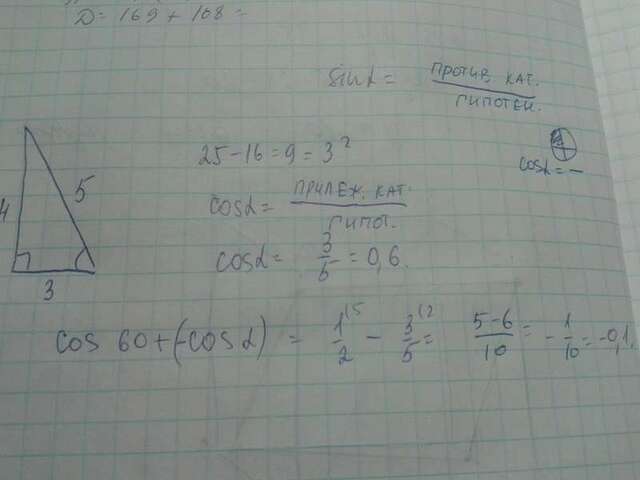 D = 169 + 108 =
sin α = против. кат. / гипотен.
25 - 16 = 9 = 3²
cos α = -
4
5
3
cos α = прилеж. кат. / гипот.
cos α = 3/5 = 0,6.
cos 60 + (-cos α) = 1/2 (5 - 3/5 (2 = 5-6/10 = -1/10 = -0,1.